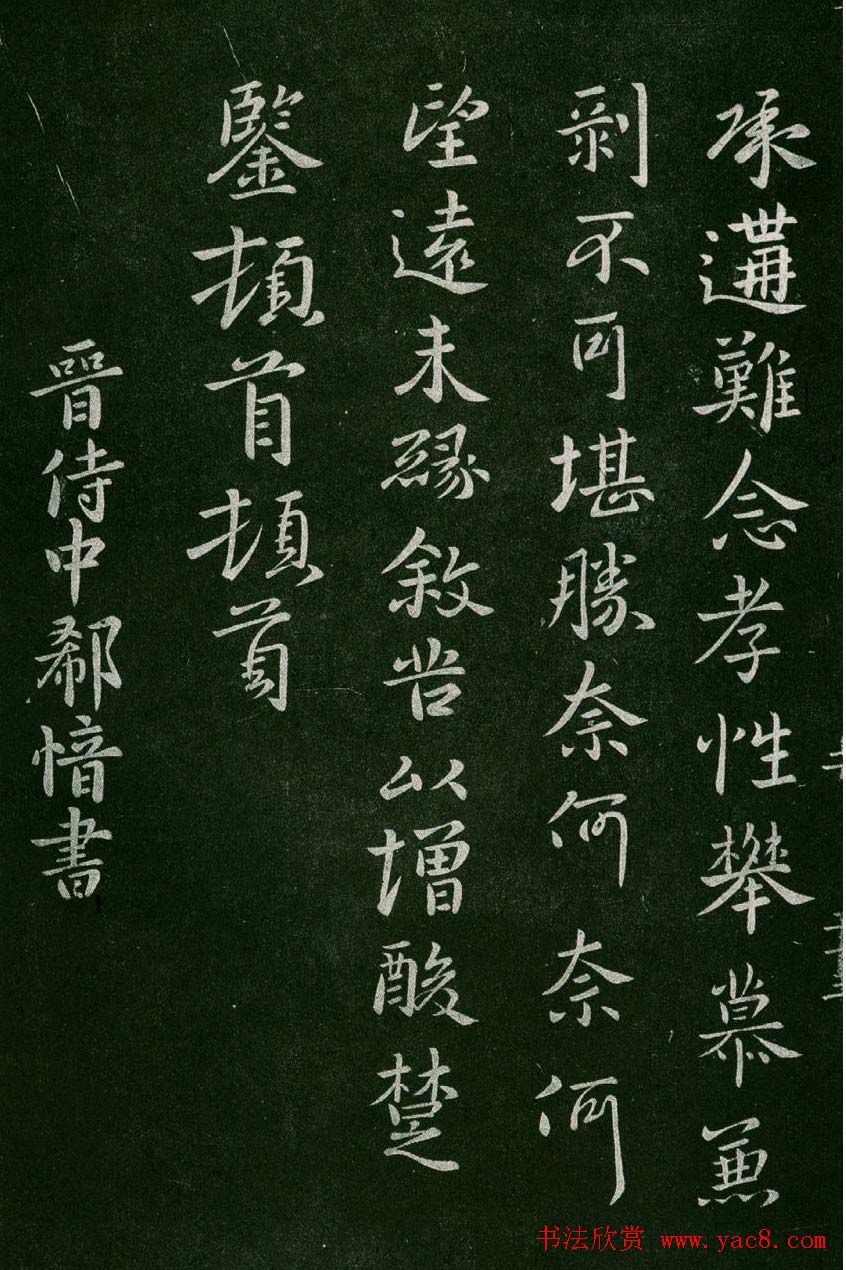 承遘難念孝性攀慕兼
剝不可堪勝奈何奈何
望遠未緣敘苦以增酸楚
鑒頓首頓首
晉侍中郗愔書
书法欣赏 www.yac8.com